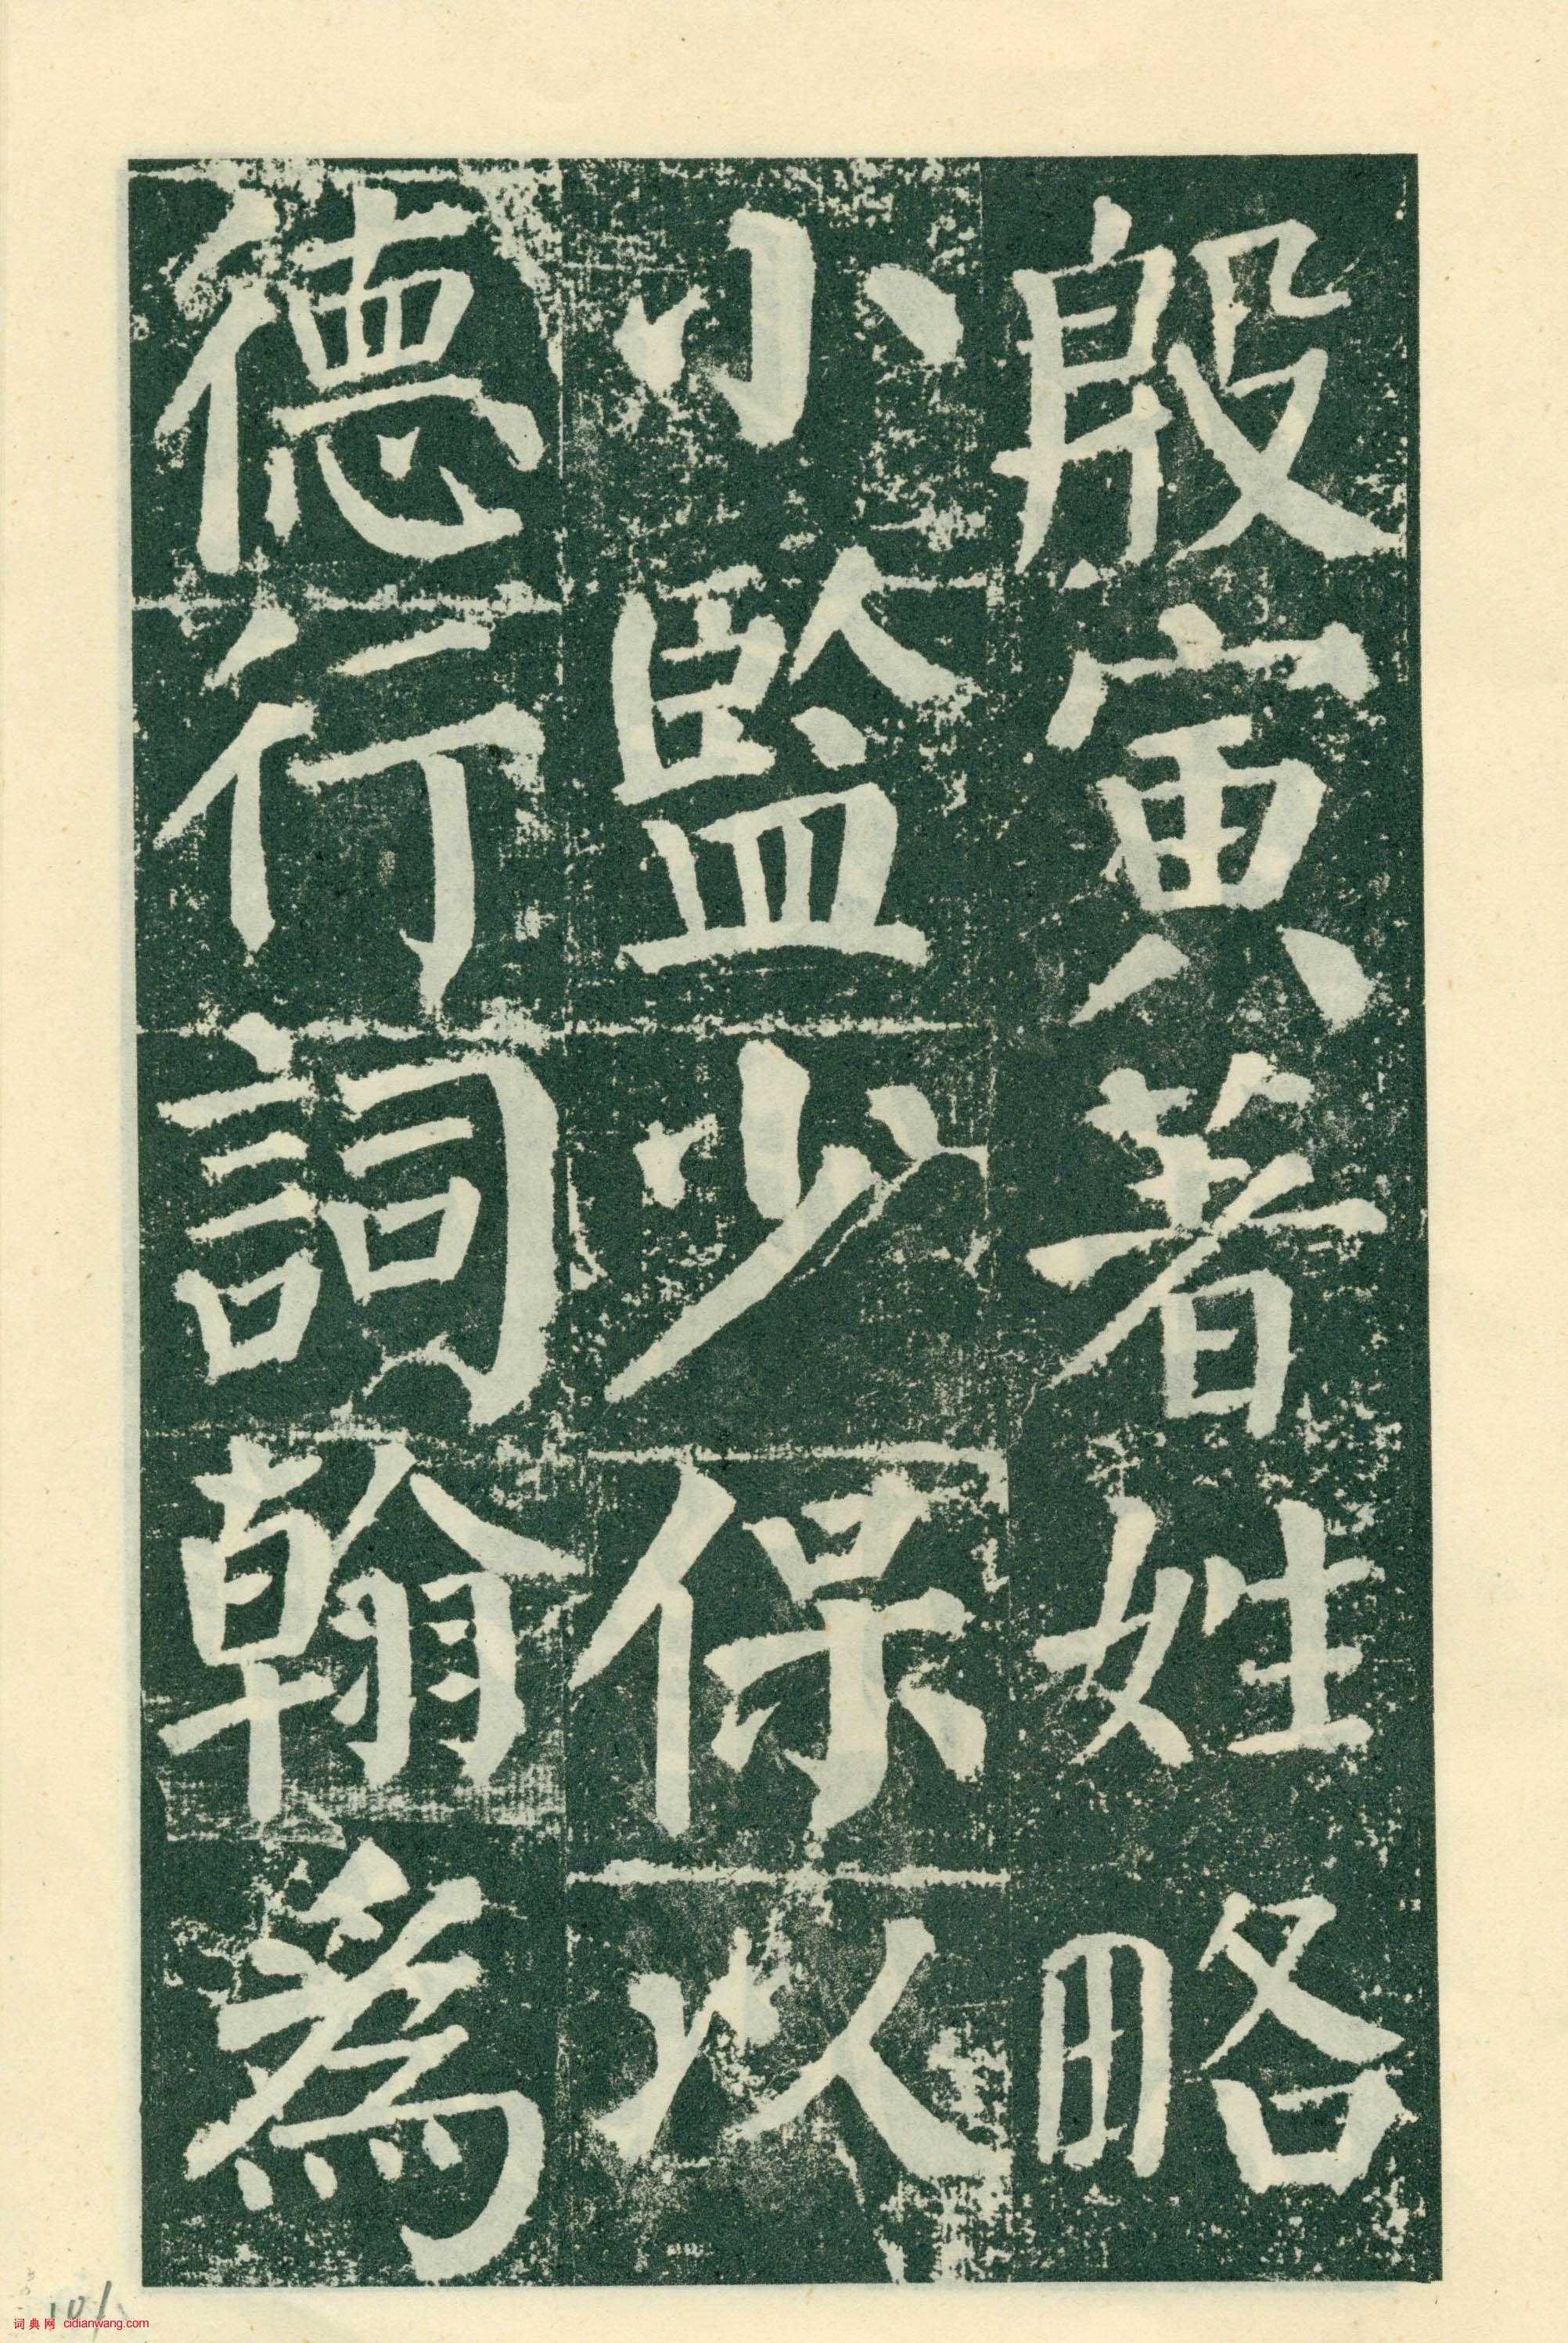 殷寅著姓略
小監少保以
德行詞翰為
101
词典网 cidianwang.com